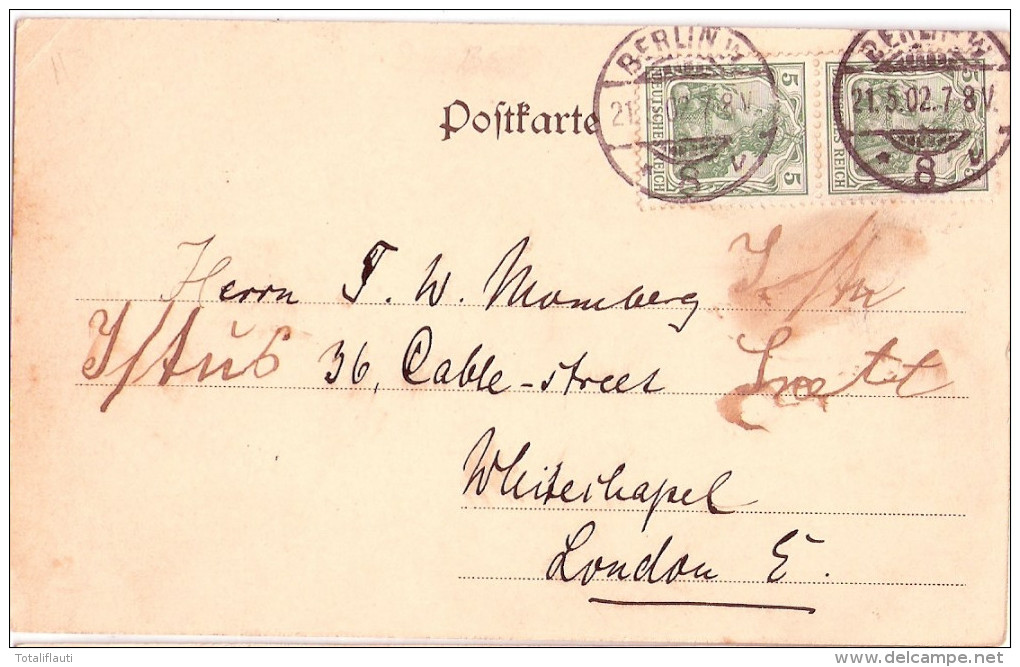 BERLIN W
21. 5.02.7 8V.
8
DEUTSCHES REICH
5 5
BERLIN W.
21.5.02.7 8V.
8
REICH
5
Postkarte
Herrn T. W. Momberg
36, Cable-street
Whitechapel
London E.
Totaliflauti
www.delcampe.net